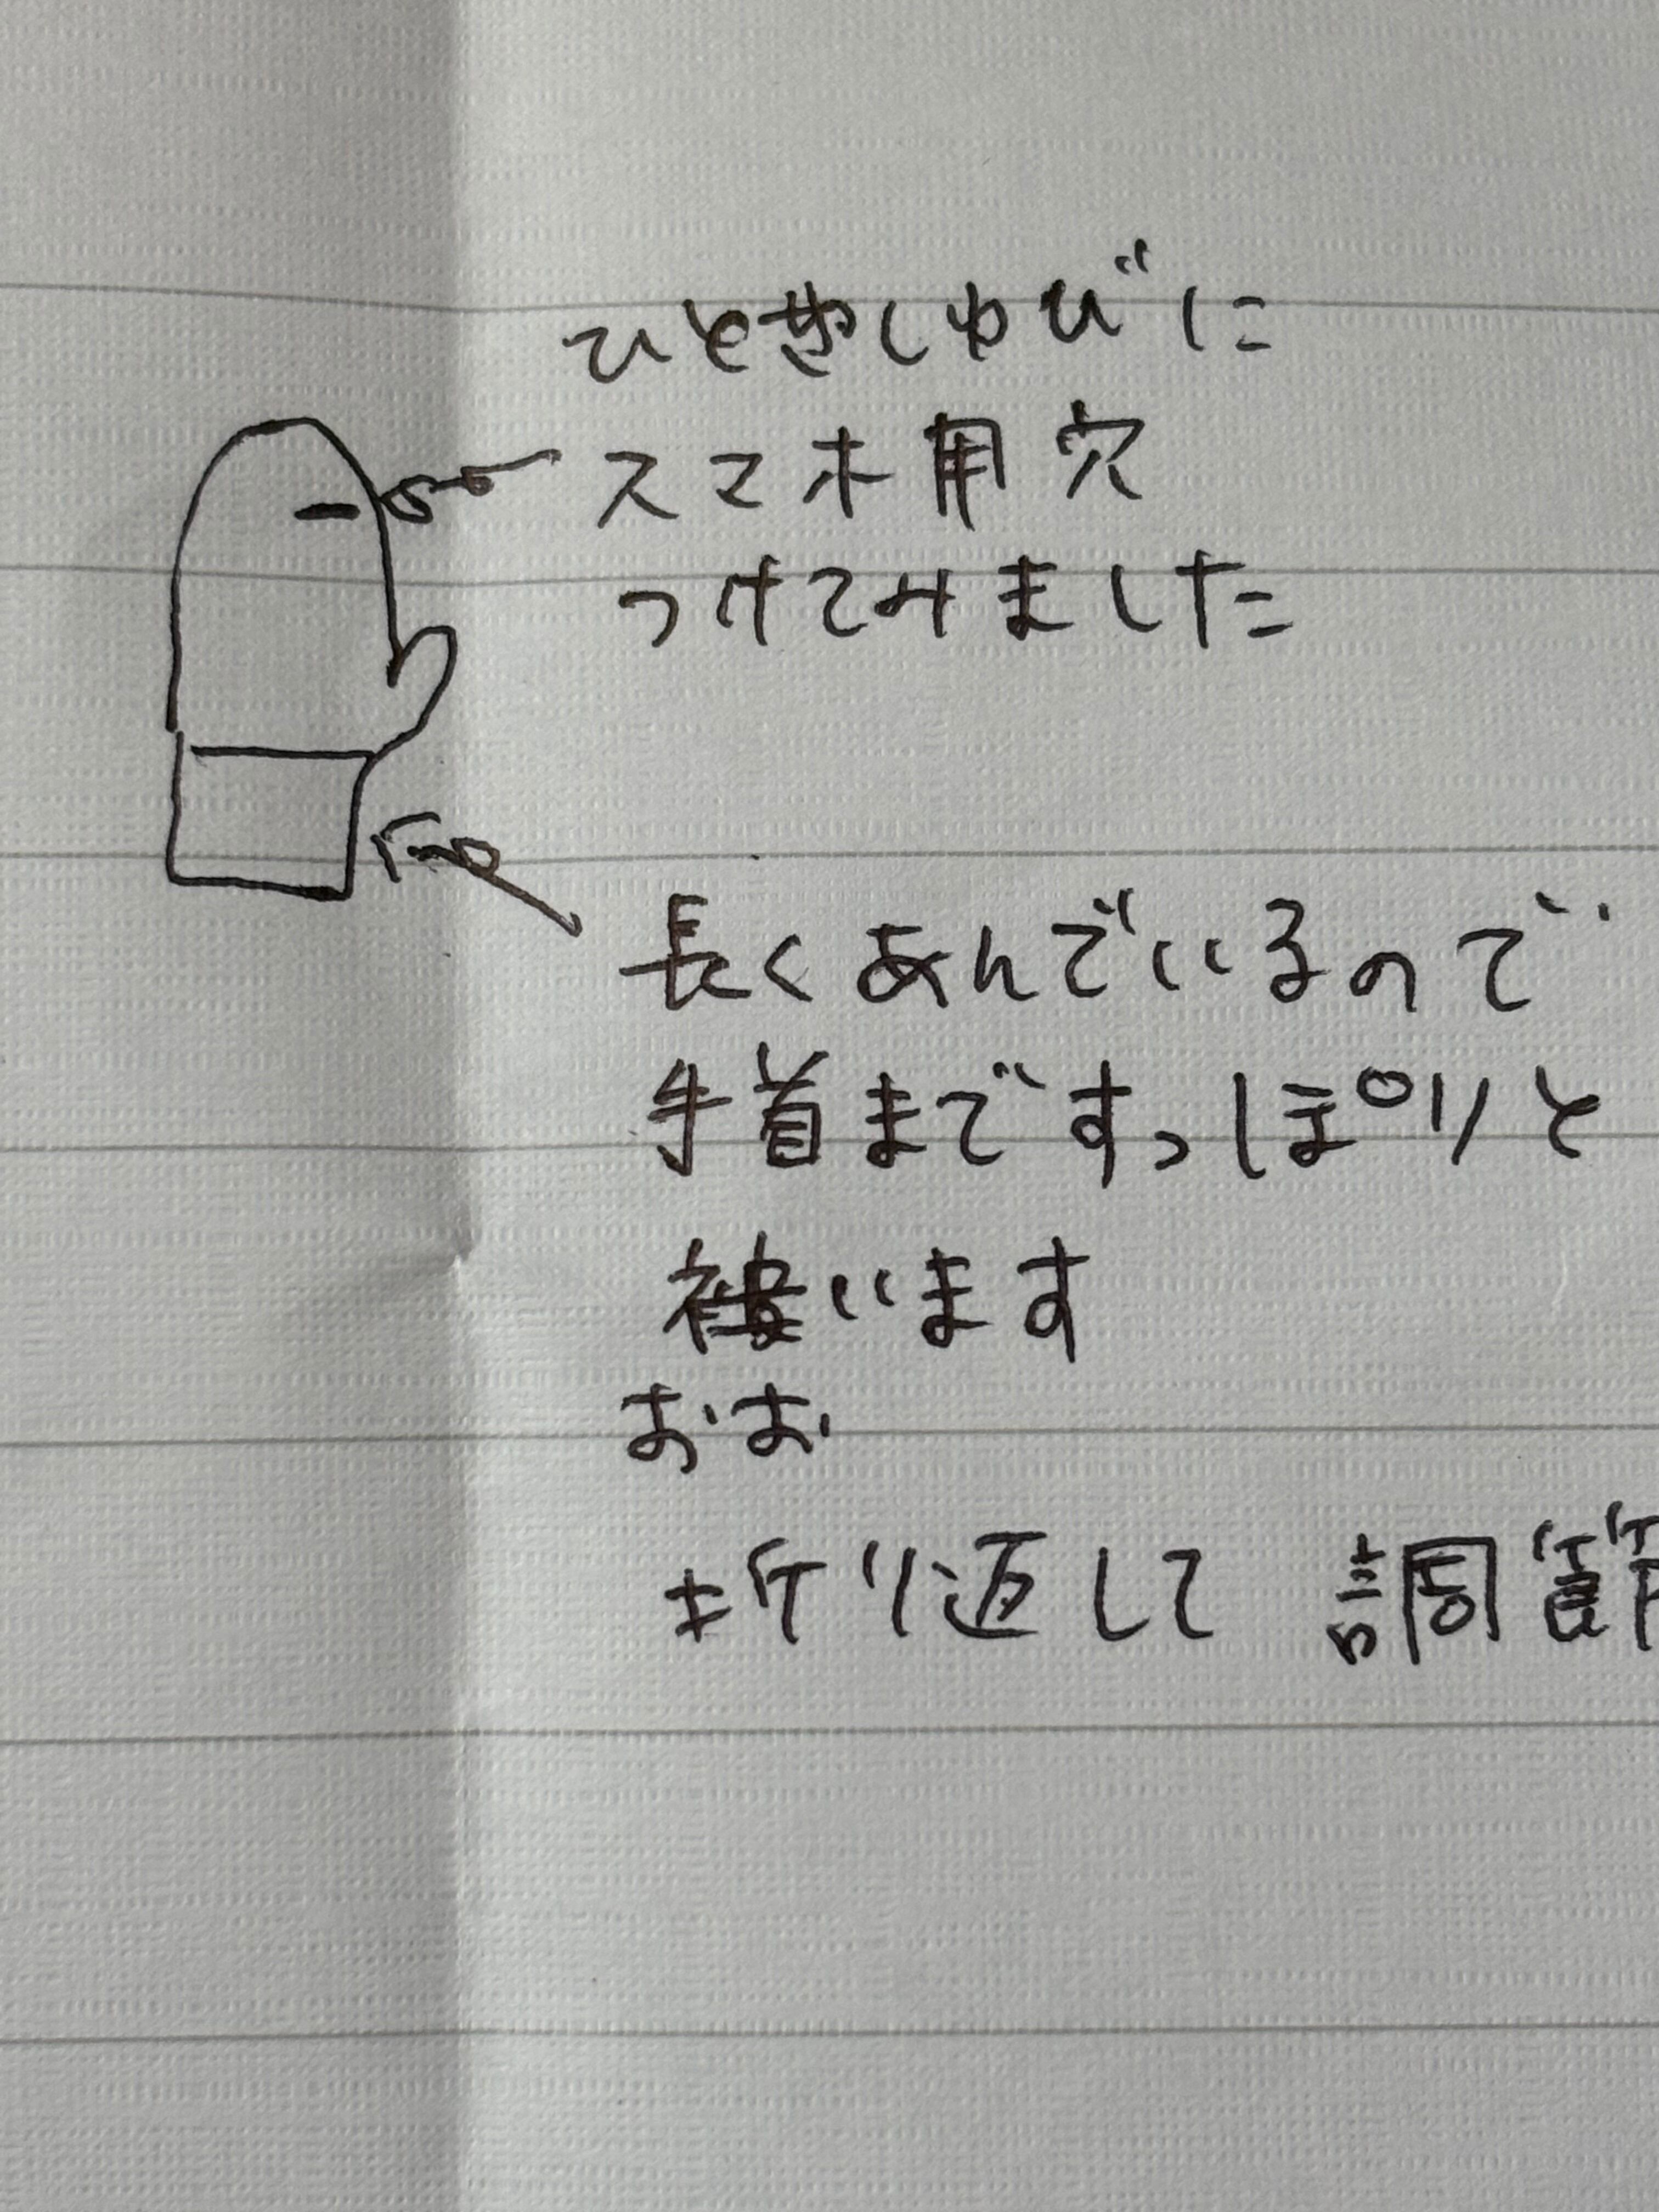 ひとさしゆびに
スマホ用穴
つけてみました
長くあんでいるので
手首まですっぽりと
被います
おお
折り返して 調節